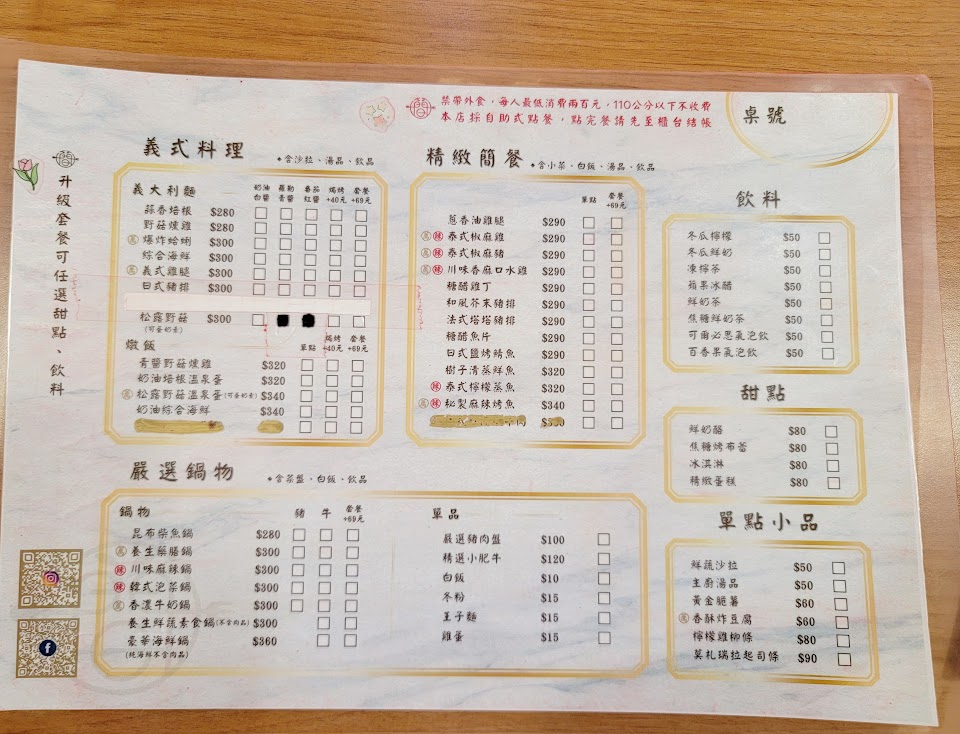 禁帶外食，每人最低消費兩百元，110公分以下不收費
本店採自助式點餐，點完餐請先至櫃台結帳
桌號
升級套餐可任選甜點、飲料
義式料理 ◆含沙拉、湯品、飲品
義大利麵 奶油白醬 羅勒青醬 番茄紅醬 焗烤+40元 套餐+69元
蒜香培根 $280
野菇燻雞 $280
爆炸蛤蜊 $300
綜合海鮮 $300
義式雞腿 $300
日式豬排 $300
松露野菇 $300
(可蛋奶素)
燉飯 單點 焗烤+40元 套餐+69元
青醬野菇燻雞 $320
奶油培根溫泉蛋 $320
松露野菇溫泉蛋(可蛋奶素) $340
奶油綜合海鮮 $340
精緻簡餐 ◆含小菜、白飯、湯品、飲品
單點 套餐+69元
蔥香油雞腿 $290
辣 泰式椒麻雞 $290
辣 泰式椒麻豬 $290
辣 川味香麻口水雞 $290
糖醋雞丁 $290
和風芥末豬排 $290
法式塔塔豬排 $290
糖醋魚片 $290
日式鹽烤鯖魚 $290
樹子清蒸鮮魚 $320
辣 泰式檸檬蒸魚 $320
辣 秘製麻辣烤魚 $340
飲料
冬瓜檸檬 $50
冬瓜鮮奶 $50
凍檸茶 $50
蘋果冰醋 $50
鮮奶茶 $50
焦糖鮮奶茶 $50
可爾必思氣泡飲 $50
百香果氣泡飲 $50
甜點
鮮奶酪 $80
焦糖烤布蕾 $80
冰淇淋 $80
精緻蛋糕 $80
嚴選鍋物 ◆含菜盤、白飯、飲品
鍋物 豬 牛 套餐+69元
昆布柴魚鍋 $280
養生藥膳鍋 $300
辣 川味麻辣鍋 $300
辣 韓式泡菜鍋 $300
香濃牛奶鍋 $300
養生鮮蔬素食鍋(不含肉品) $300
豪華海鮮鍋 $360
(純海鮮不含肉品)
單品
嚴選豬肉盤 $100
精選小肥牛 $120
白飯 $10
冬粉 $15
王子麵 $15
雞蛋 $15
單點小品
鮮蔬沙拉 $50
主廚湯品 $50
黃金脆薯 $60
香酥炸豆腐 $60
檸檬雞柳條 $80
莫札瑞拉起司條 $90